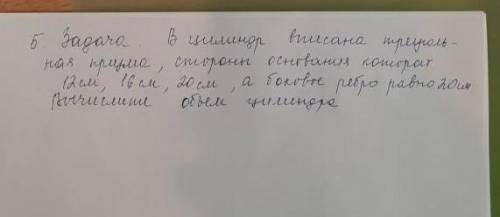 5. Задача. В цилиндр вписана треуголь-
ная призма, стороны основания которой
12см, 16см, 20см, а боковое ребро равно 20см
Вычислите объем цилиндра